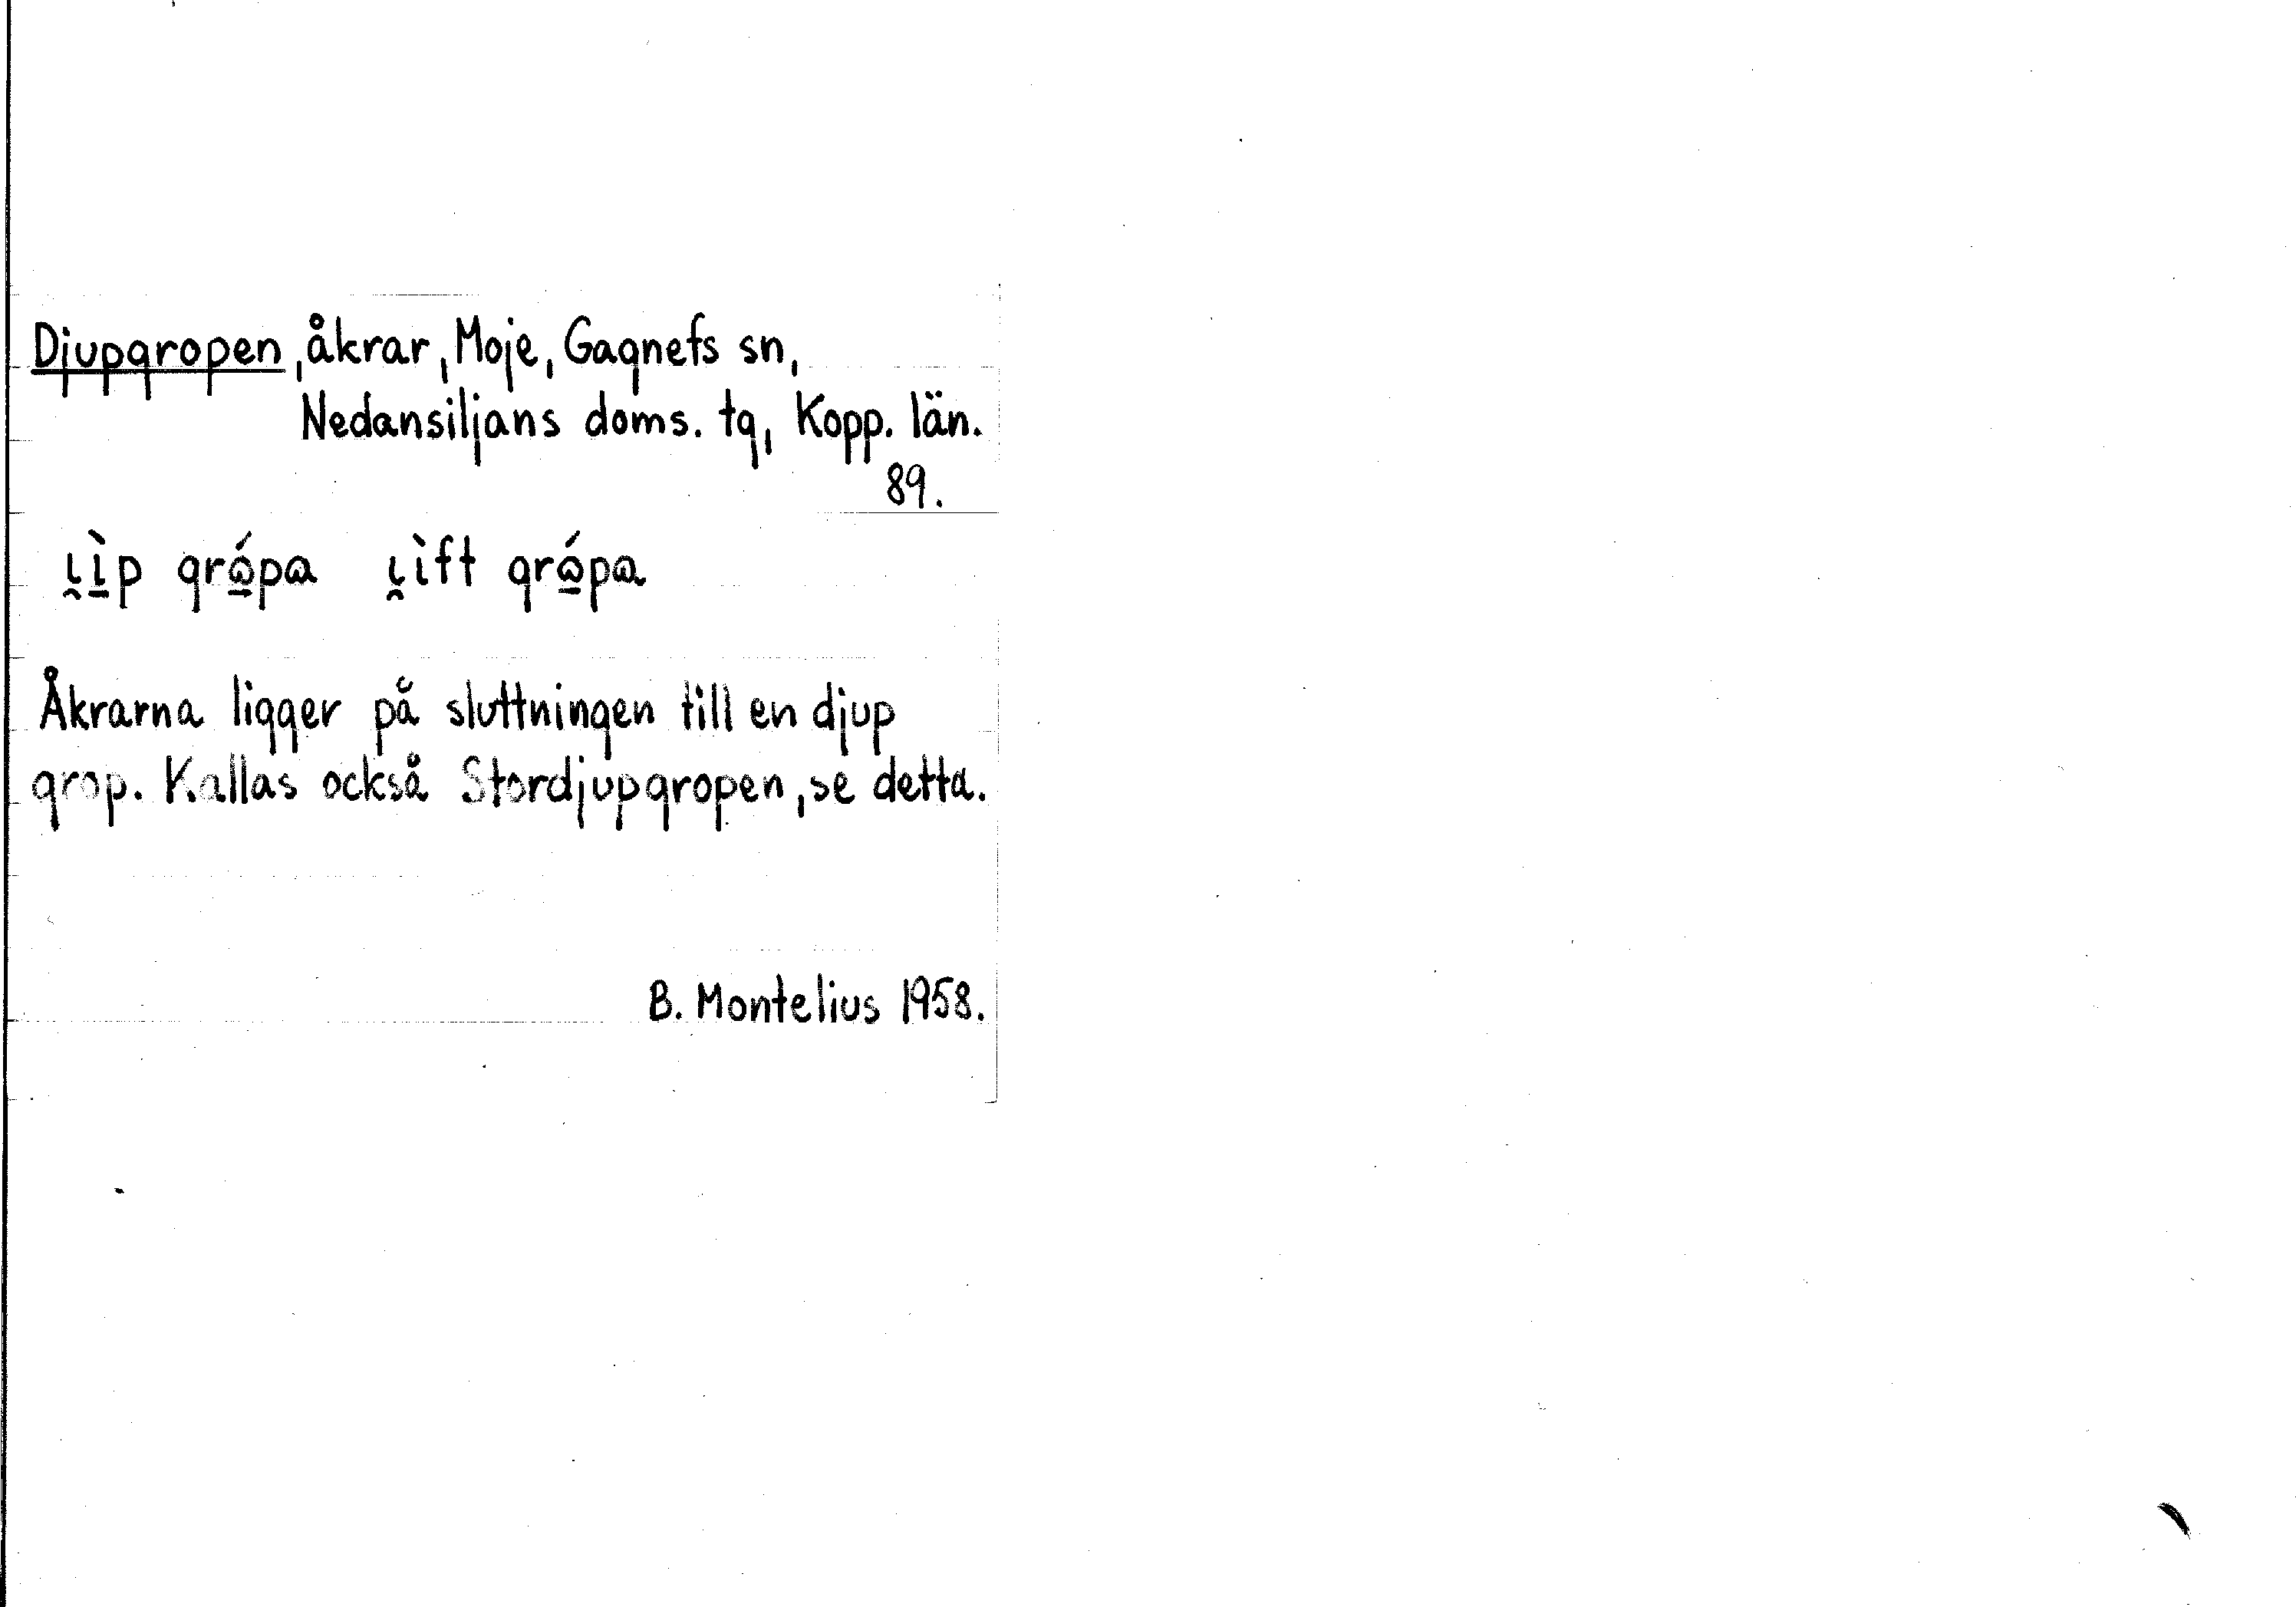 Djupgropen, åkrar, Moje, Gagnefs sn,
Nedansiljans doms. tg, Kopp. län.
89.
ı̯ı̱̀p grώ̱pa ı̯ìft grώ̱pa
Åkrarna ligger på sluttningen till en djup
grop. Kallas också Stordjupgropen, se detta.
B. Montelius 1958.